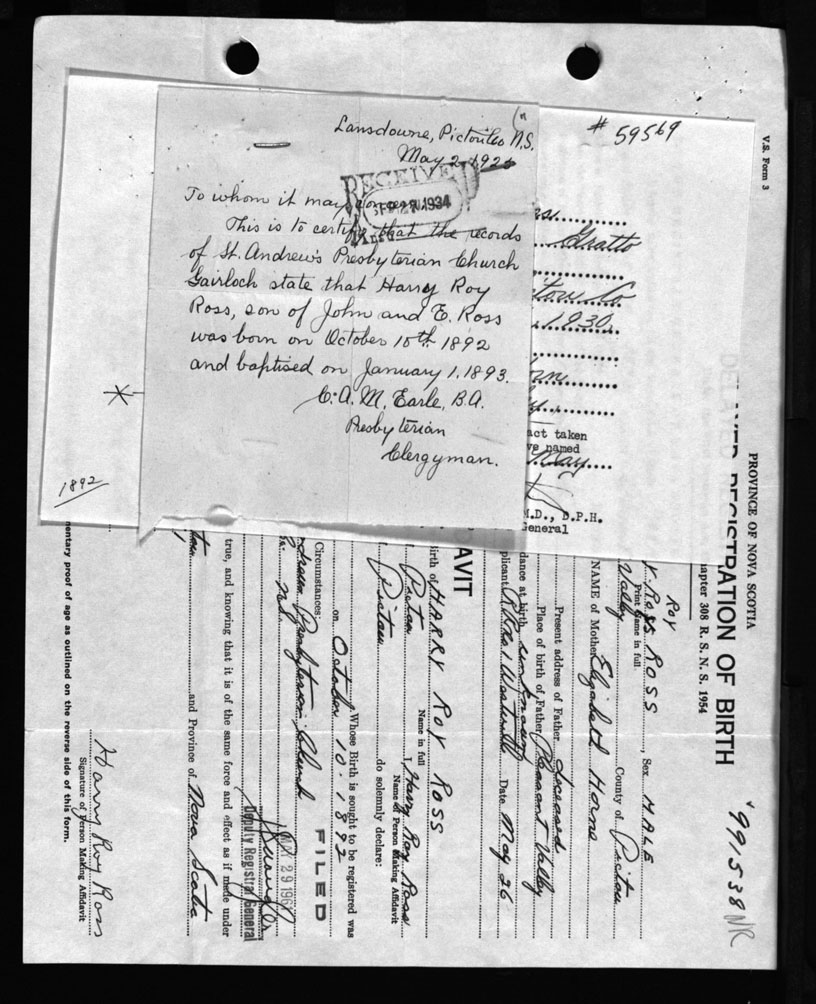 Lansdowne, Pictou Co N.S.
May 2, 192
RECEIVED
SEP 27 1934
To whom it may concern:
This is to certify that the records
of St. Andrew's Presbyterian Church
Gairloch state that Harry Roy
Ross, son of John and E. Ross
was born on October 10th 1892
and baptised on January 1, 1893.
C. A. M. Earle, B.A.
Presbyterian
Clergyman.
# 59569
Gratto
tou Co
1930
act taken
ve named
M.D., D.P.H.
General
1892
V.S. Form 3
PROVINCE OF NOVA SCOTIA
DELAYED REGISTRATION OF BIRTH
hapter 308 R. S. N. S. 1954
991538 NR
Roy
Ross ROSS, Sex MALE
Print name in full
Valley County of Pictou
NAME of Mother Elizabeth Horne
Present address of Father deceased
Place of birth of Father Pleasant Valley
dance at birth unknown
plicant R.R. No 1 Westville Date May 26
DAVIT
irth of HARRY ROY ROSS
Name in full
Pictou I, Harry Roy Ross
Name of Person Making Affidavit
Pictou do solemnly declare:
Whose Birth is sought to be registered was
on October 10. 1892
Circumstances:
FILED
drews Presbyterian Church
N.S.
MAY 29 196
Deputy Registrar General
true, and knowing that it is of the same force and effect as if made under
and Province of Nova Scotia
Harry Roy Ross
Signature of Person Making Affidavit
mentary proof of age as outlined on the reverse side of this form.